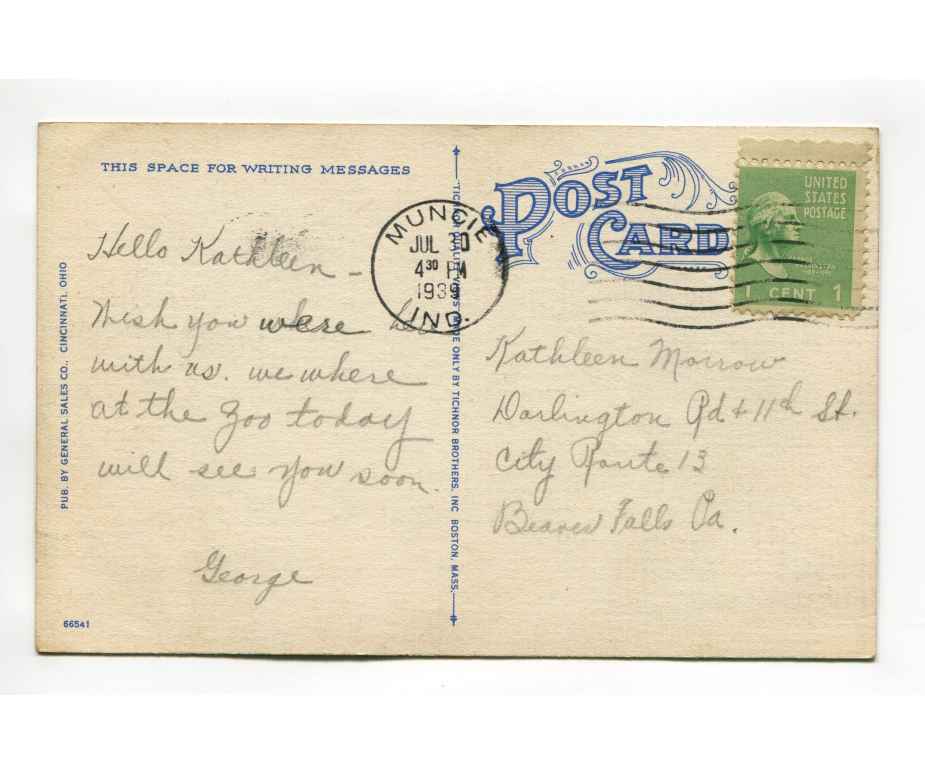 THIS SPACE FOR WRITING MESSAGES
Hello Kathleen –
Wish you were
with us. we where
at the Zoo today
will see you soon.
George
PUB. BY GENERAL SALES CO., CINCINNATI, OHIO
66541
MADE ONLY BY TICHNOR BROTHERS, INC BOSTON, MASS.
MUNCIE
JUL 30
4 30 PM
1939
IND.
POST
CARD
UNITED
STATES
POSTAGE
1 CENT 1
Kathleen Morrow
Darlington Rd + 11th St.
City Route 13
Beaver Falls Pa.